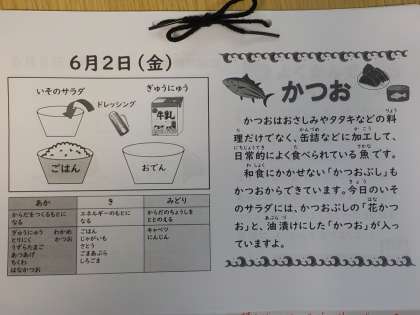 6月2日(金)
いそのサラダ
ドレッシング
ぎゅうにゅう
牛乳
ごはん
おでん
あか
き
みどり
からだをつくるもとに
なる
エネルギーのもとに
なる
からだのちょうしを
ととのえる
ぎゅうにゅう わかめ
とりにく かつお
うずらたまご
あつあげ
ちくわ
はなかつお
ごはん
じゃがいも
さとう
ごまあぶら
しろごま
キャベツ
にんじん
かつお
かつおはおさしみやタタキなどの料
理だけでなく、缶詰などに加工して、
日常的によく食べられている魚です。
和食にかかせない「かつおぶし」も
かつおからできています。今日のいそ
のサラダには、かつおぶしの「花かつ
お」と、油漬けにした「かつお」が入っ
ていますよ。